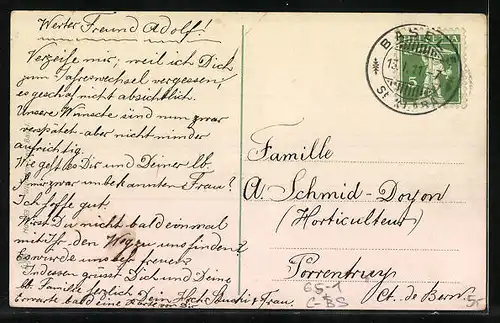 Werter Freund Adolf!
Verzeihe mir, weil ich Dich
zum Jahreswechsel vergessen,
es geschah nicht absichtlich.
Unsere Wünsche sind nun zwar
verspätet - aber nicht minder
aufrichtig.
Wie geht es Dir und Deiner lb.
mir zwar unbekannten Frau?
Ich hoffe gut.
Wirst Du nicht bald einmal
mit ihr den Weg zu uns finden?
Es würde uns sehr freuen
Indessen grüsst Dich und Deine
lb. Familie herzlich Dein Hch. & Frau.
Erwarte bald eine Karte von Dir
BASEL
13.
ST. KLARA
Famille
A. Schmid-Doyon
(Horticulteur)
Porrentruy
Ct. de Bern
65-1
C-BS
5.-